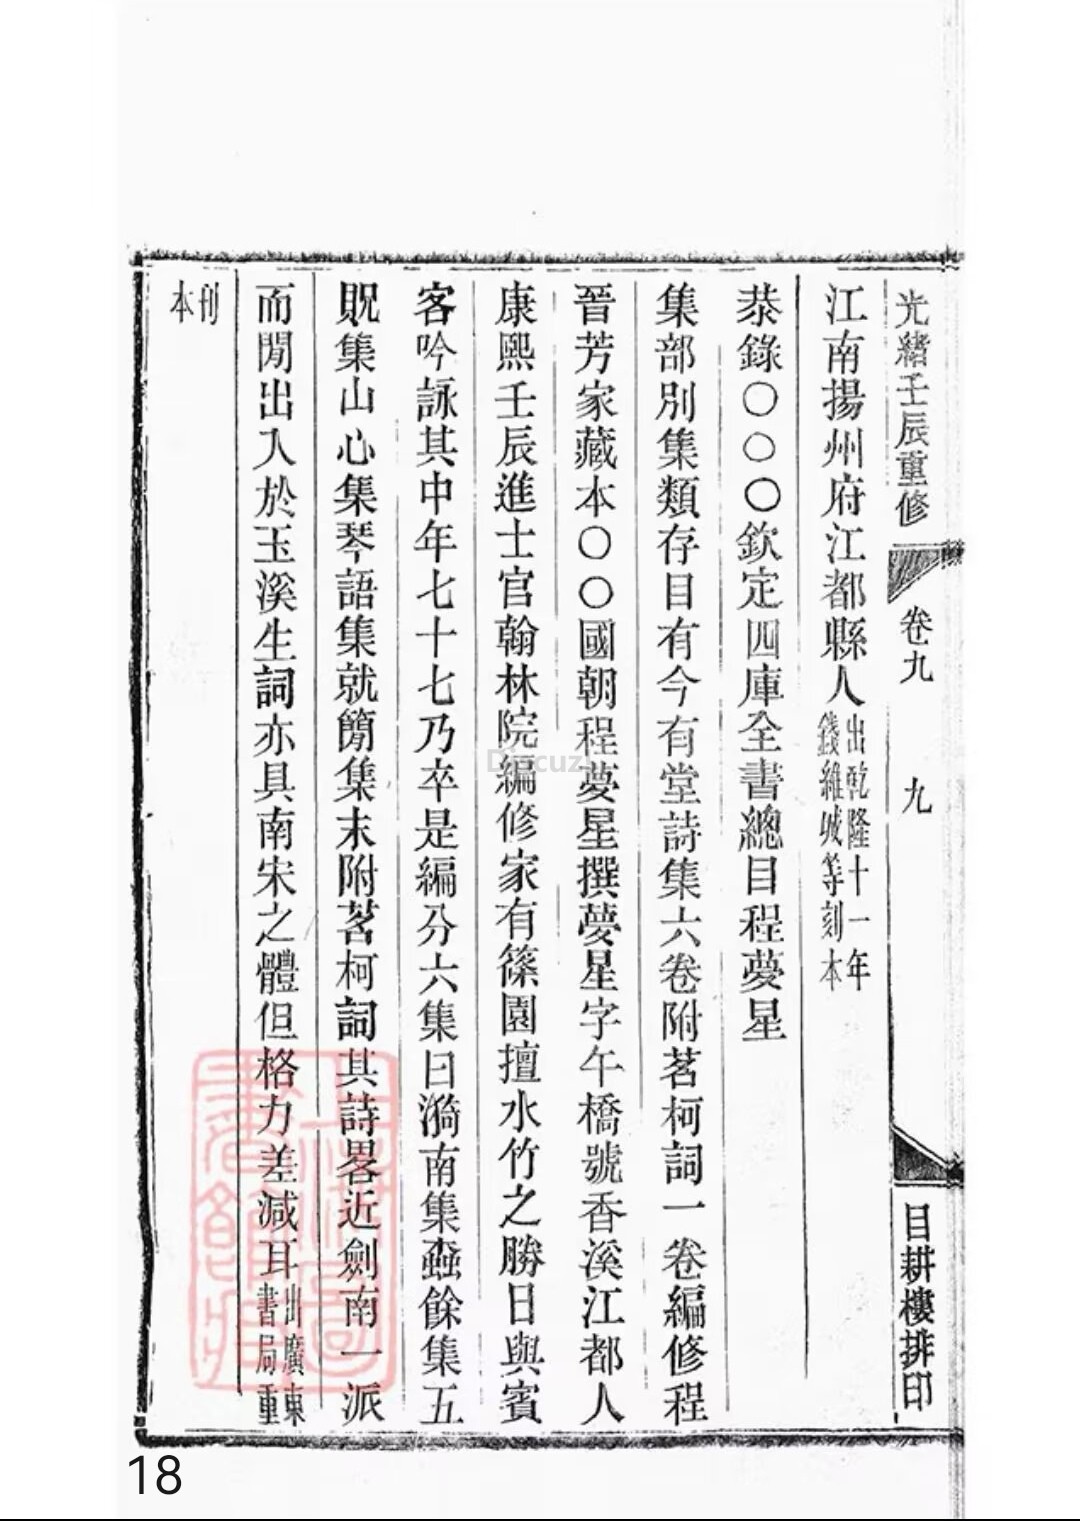 光緒壬辰重修
卷九
九
目耕樓排印
江南揚州府江都縣人出乾隆十一年
錢維城等刻本
恭錄〇〇〇欽定四庫全書總目程夢星
集部別集類存目有今有堂詩集六卷附茗柯詞一卷編修程
晉芳家藏本〇〇國朝程夢星撰夢星字午橋號香溪江都人
康熙壬辰進士官翰林院編修家有篠園擅水竹之勝日與賓
客吟詠其中年七十七乃卒是編分六集曰漪南集蝨餘集五
貺集山心集琴語集就簡集末附茗柯詞其詩畧近劍南一派
而閒出入於玉溪生詞亦具南宋之體但格力差減耳出廣東
書局重
刊
本
Discuz!
18